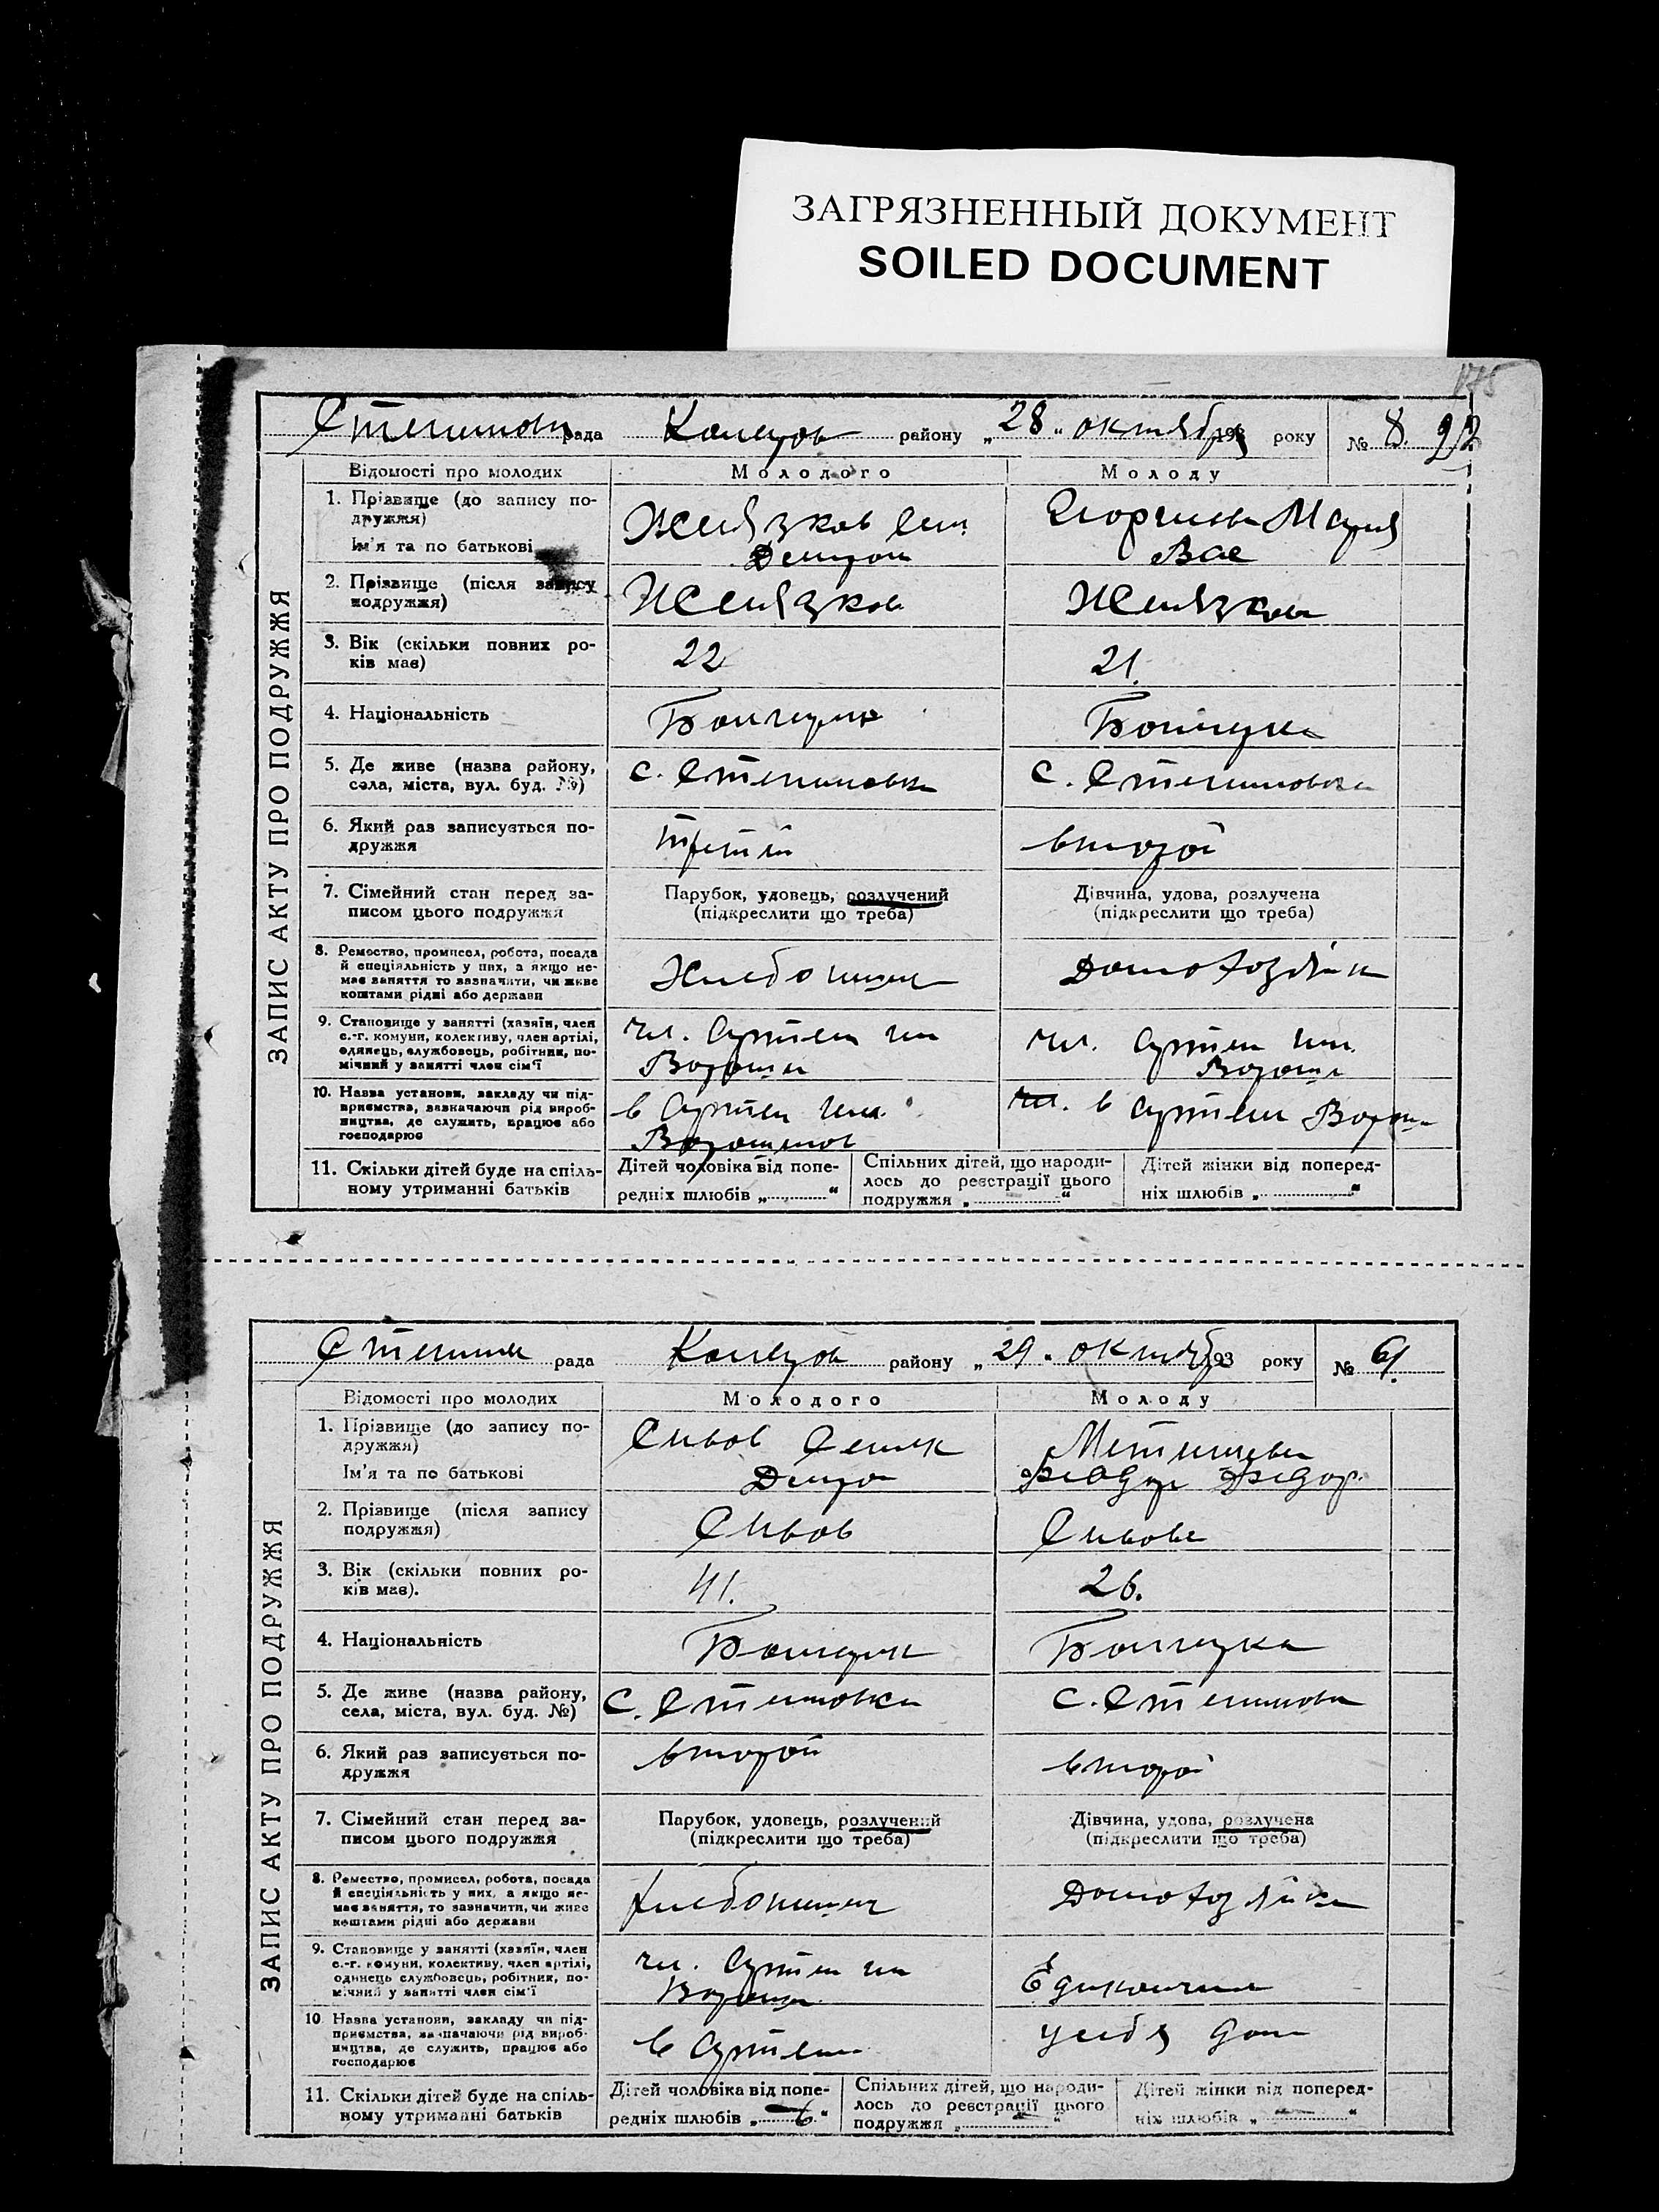 ЗАГРЯЗНЕННЫЙ ДОКУМЕНТ
SOILED DOCUMENT
175
рада району „28“ октября 193 року № 8. 92
ЗАПИС АКТУ ПРО ПОДРУЖЖЯ
Відомості про молодих Молодого Молоду
1. Прізвище (до запису по-
дружжя)
Ім'я та по батькові
Желязков
Мария
Вас
2. Прізвище (після запису
подружжя)
Желязков Желязкова
3. Вік (скільки повних ро-
ків має)
22 21.
4. Національність
Болгарин Болгарка
5. Де живе (назва району,
села, міста, вул. буд. №)
с. Степановка с. Степановка
6. Який раз записується по-
дружжя
третій второй
7. Сімейний стан перед за-
писом цього подружжя
Парубок, удовець, розлучений
(підкреслити що треба)
Дівчина, удова, розлучена
(підкреслити що треба)
8. Ремество, промисел, робота, посада
й спеціяльність у них, а якщо не-
має заняття то зазначити, чи живе
коштами рідні або держави
9. Становище у занятті (хазяїн, член
с.-г. комуни, колективу, член артілі,
одинець, службовець, робітник, по-
мічний у занятті член сім'ї
чл. Артели им
Вороши
чл. Артели им.
Вороши
10. Назва установи, закладу чи під-
приємства, зазначаючи рід вироб-
ництва, де служить, працює або
господарює
в Артели им.
в Артели
11. Скільки дітей буде на спіль-
ному утриманні батьків
Дітей чоловіка від попе-
редніх шлюбів „ “
Спільних дітей, що народи-
лось до реєстрації цього
подружжя „ “
Дітей жінки від поперед-
ніх шлюбів „ “
рада району „29“ октября 193 року №
ЗАПИС АКТУ ПРО ПОДРУЖЖЯ
Відомості про молодих Молодого Молоду
1. Прізвище (до запису по-
дружжя)
Ім'я та по батькові
Сивов
2. Прізвище (після запису
подружжя)
Сивов Сивова
3. Вік (скільки повних ро-
ків має).
41. 26.
4. Національність
Болгарин Болгарка
5. Де живе (назва району,
села, міста, вул. буд. №)
с. Степановка с. Степановка
6. Який раз записується по-
дружжя
второй второй
7. Сімейний стан перед за-
писом цього подружжя
Парубок, удовець, розлучений
(підкреслити що треба)
Дівчина, удова, розлучена
(підкреслити що треба)
8. Ремество, промисел, робота, посада
й спеціяльність у них, а якщо не-
має заняття, то зазначити, чи живе
коштами рідні або держави
9. Становище у занятті (хазяїн, член
с.-г. комуни, колективу, член артілі,
одинець службовець, робітник, по-
мічний у занятті член сім'ї
чл. Артели им
Вороши
10 Назва установи, закладу чи під-
приємства, зазначаючи рід вироб-
ництва, де служить, працює або
господарює
в Артели
11. Скільки дітей буде на спіль-
ному утриманні батьків
Дітей чоловіка від попе-
редніх шлюбів „ 6 “
Спільних дітей, що народи-
лось до реєстрації цього
подружжя „ — “
Дітей жінки від поперед-
ніх шлюбів „ — “